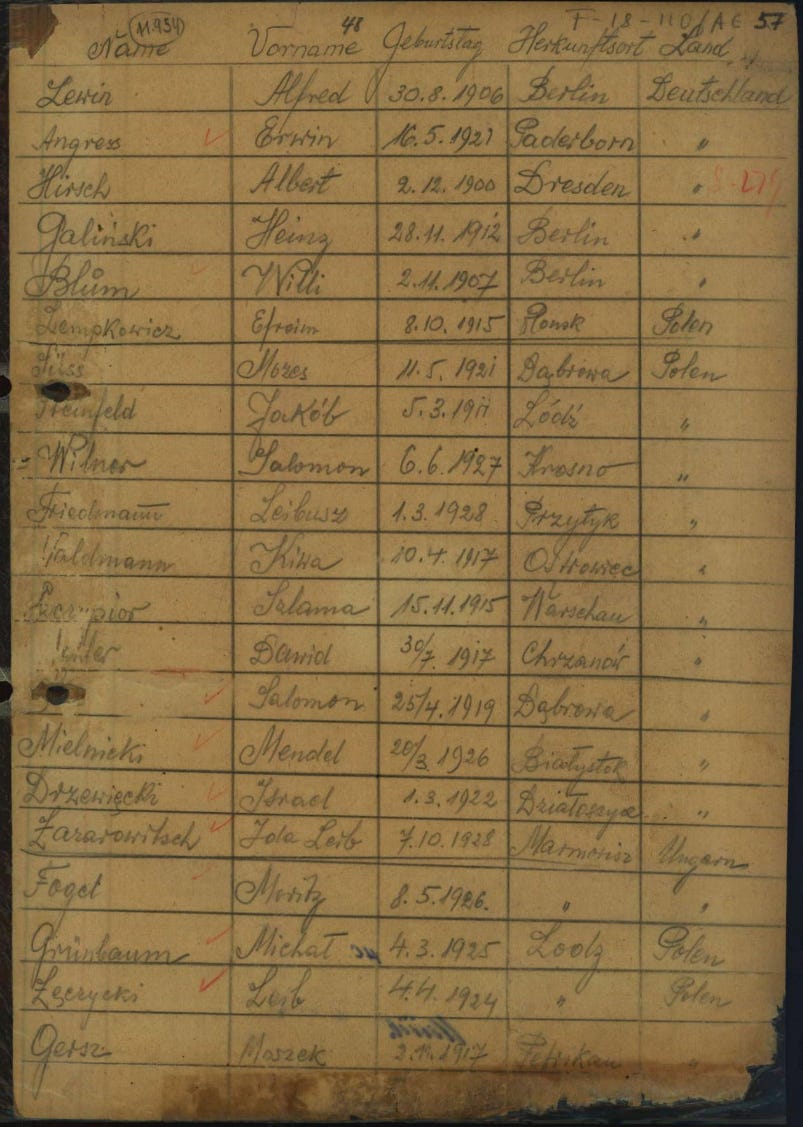 (11.954) 48 F-18-110/AE 57
Name Vorname Geburtstag Herkunftsort Land
Lewin Alfred 30.8.1906 Berlin Deutschland
Angress Erwin 16.5.1921 Paderborn "
Hirsch Albert 2.12.1900 Dresden "
Galiński Heinz 28.11.1912 Berlin "
Blům Willi 2.11.1907 Berlin "
Lempkowicz Efroim 8.10.1915 Płonsk Polen
Süss Mozes 11.5.1921 Dąbrowa Polen
Jakób 5.3.1911 Łódź "
Wilner Salomon 6.6.1927 Krosno "
Friedmann Leibusz 1.3.1928 Przytyk "
Waldmann Kiwa 10.4.1917 Ostrowiec "
Szlama 15.11.1915 Warschau "
Dawid 30/7.1917 Chrzanów "
Salomon 25/4.1919 Dąbrowa "
Mielnicki Mendel 20/3.1926 Białystok "
Drzewięcki Israel 1.3.1922 Działoszyce "
Lazarowitsch Ida Leib 7.10.1928 Marmorisz Ungarn
Fogel Moritz 8.5.1926. " "
Grünbaum Michał 4.3.1925 Lodz Polen
Łęczycki Leib 4.4.1924 " Polen
Gersz Moszek 2.11.1917 Petrikau "